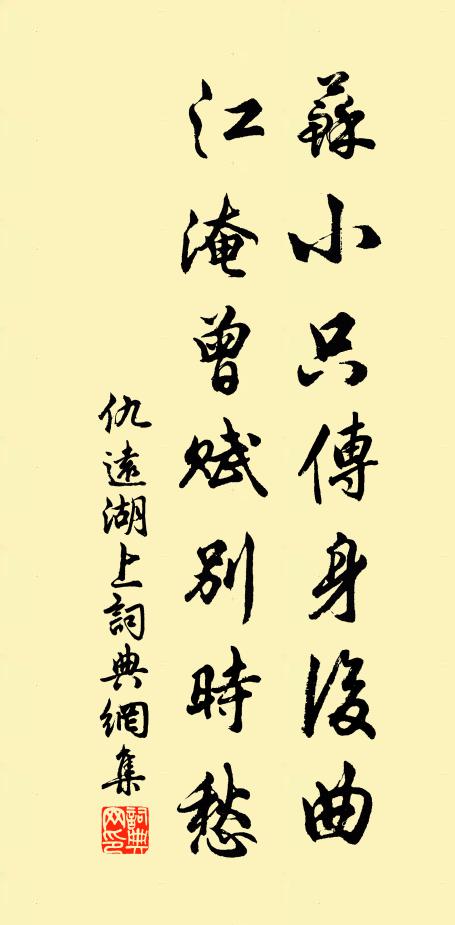 蘇小只傳身後曲
江淹曾賦別時愁
仇遠湖上詞典網集
詞典网印